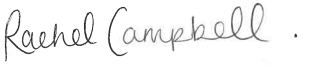 Rachel Campbell.